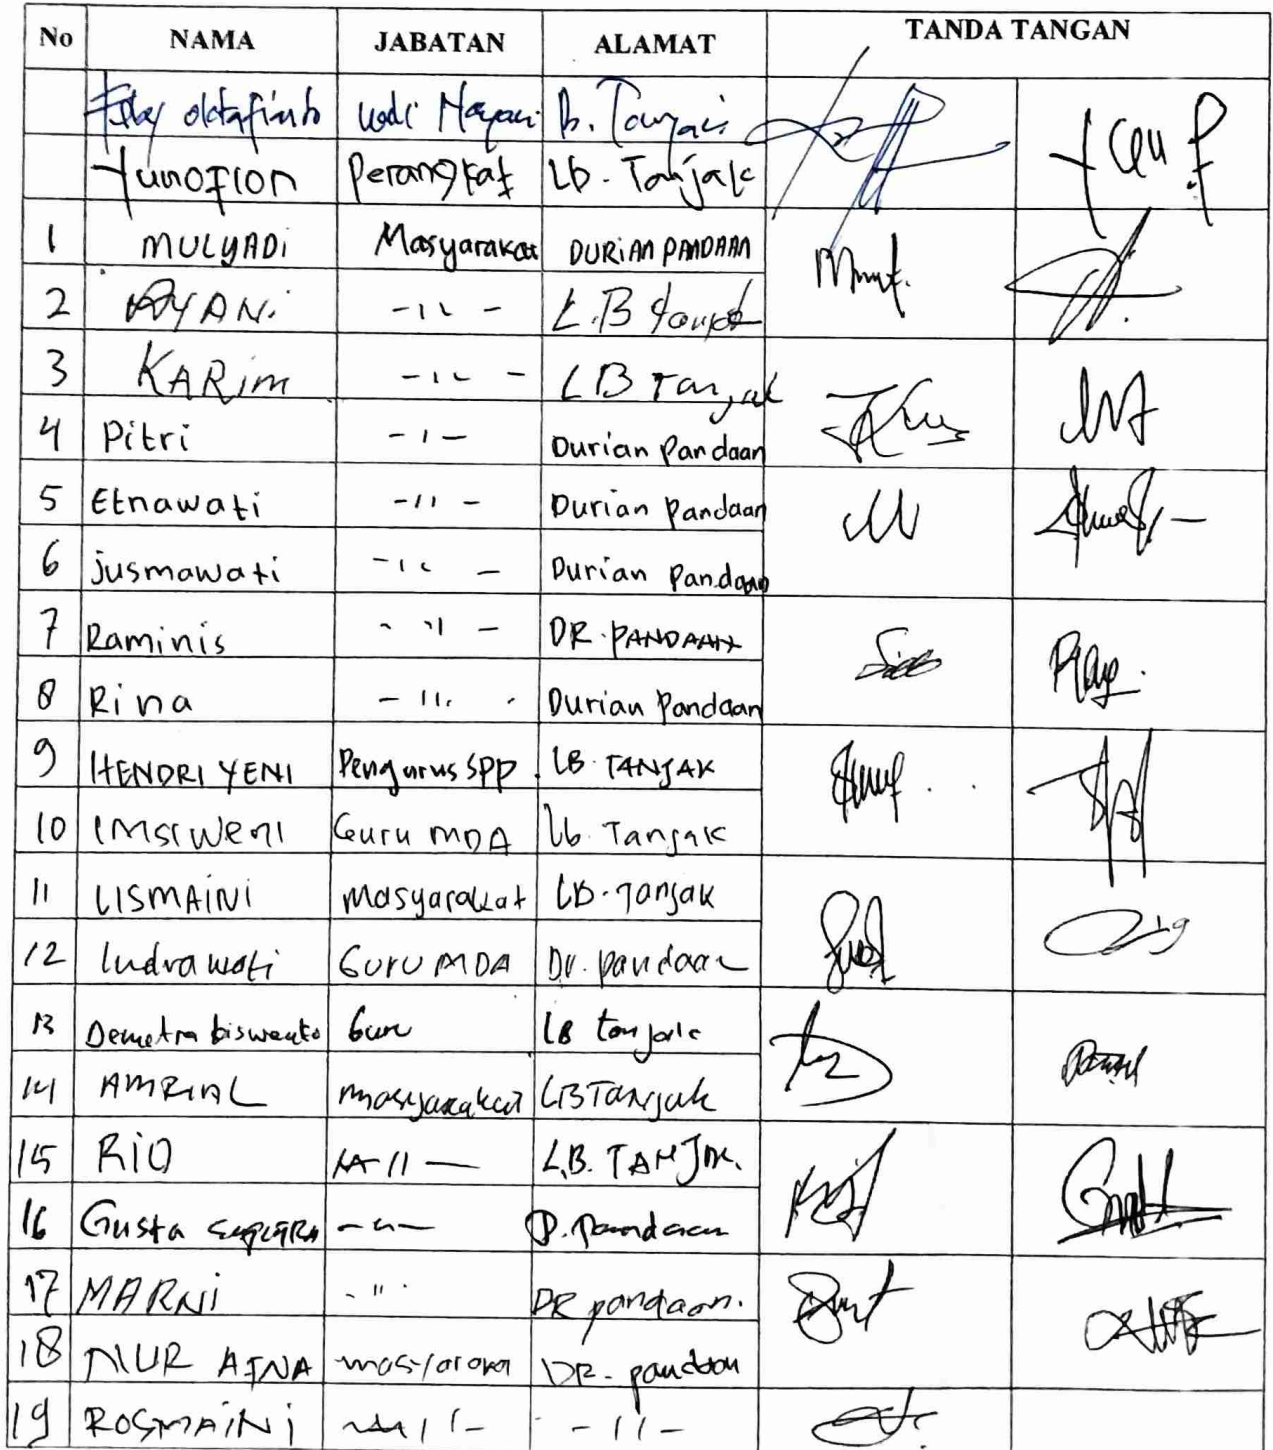 No NAMA JABATAN ALAMAT TANDA TANGAN
oktafianto
Yunofion Perangkat Lb. Tanjak
1 MULYADI Masyarakat DURIAN PANDAAN
2 AYANI -11- L.B Tanjak
3 KARim -11- LB Tanjak
4 Pitri -1- Durian Pandaan
5 Etnawati -11- Durian Pandaan
6 jusmawati -11- Durian Pandaan
7 Raminis -11- DR. PANDAAN
8 Rina -11- Durian Pandaan
9 HENDRI YENI Pengurus SPP. LB. TANJAK
10 IMSIWENI Guru MDA Lb. Tanjak
11 LISMAINI Masyarakat LB. Tanjak
12 Indrawati GURU MDA Dr. pandaan
13 Demetra Guru LB tanjak
14 AMRIAL masyarakat LB Tanjak
15 RIO -11- L.B. TANJAK.
16 Gusta -11- D. Pandaan
17 MARNi -11- DR pandaan.
18 NUR AINA DR. pandaan
19 ROSMAINi -11- -11-